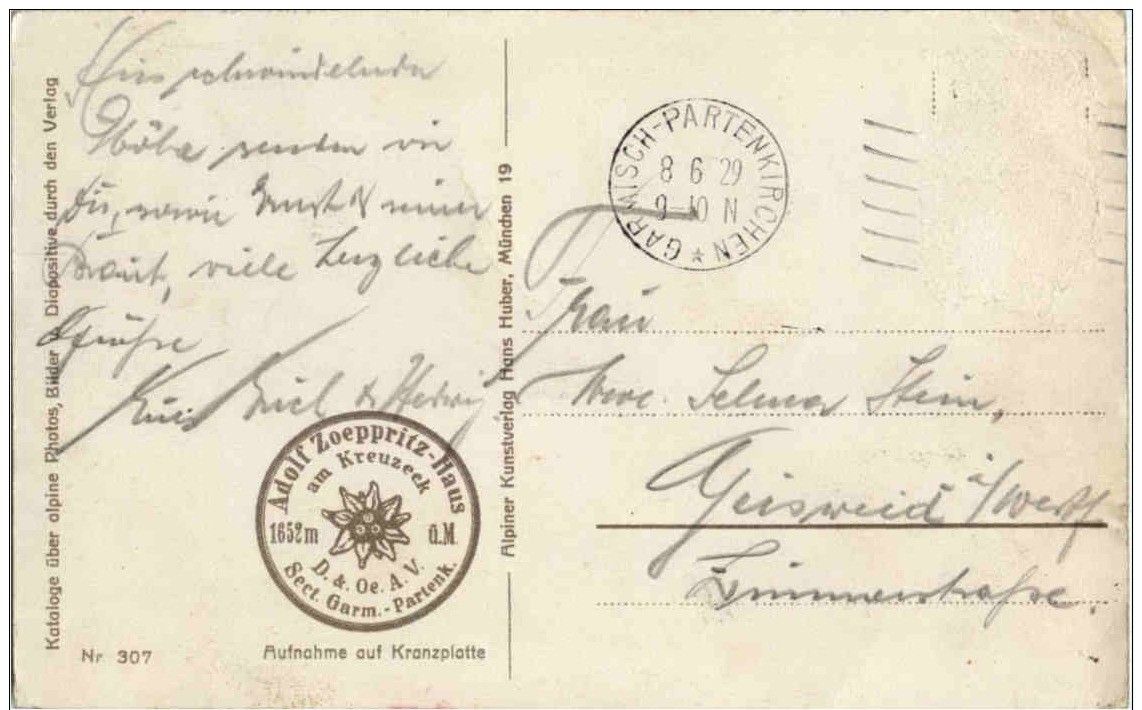 Aus schwindelnder
Höhe senden wir
Dir, sowie Ernst & seiner
Braut, viele herzliche
Grüße
Erich & Hedwig
GARMISCH-PARTENKIRCHEN
8 6 29
9-10 N
Frau
Wwe. Selma Stein,
Geisweid i/Westf
Zimmerstraße.
Kataloge über alpine Photos, Bilder Diapositive durch den Verlag
Alpiner Kunstverlag Hans Huber, München 19
Adolf Zoeppritz-Haus
am Kreuzeck
1652m ü.M.
D. & Oe. A. V.
Sect. Garm.-Partenk.
Nr 307
Aufnahme auf Kranzplatte